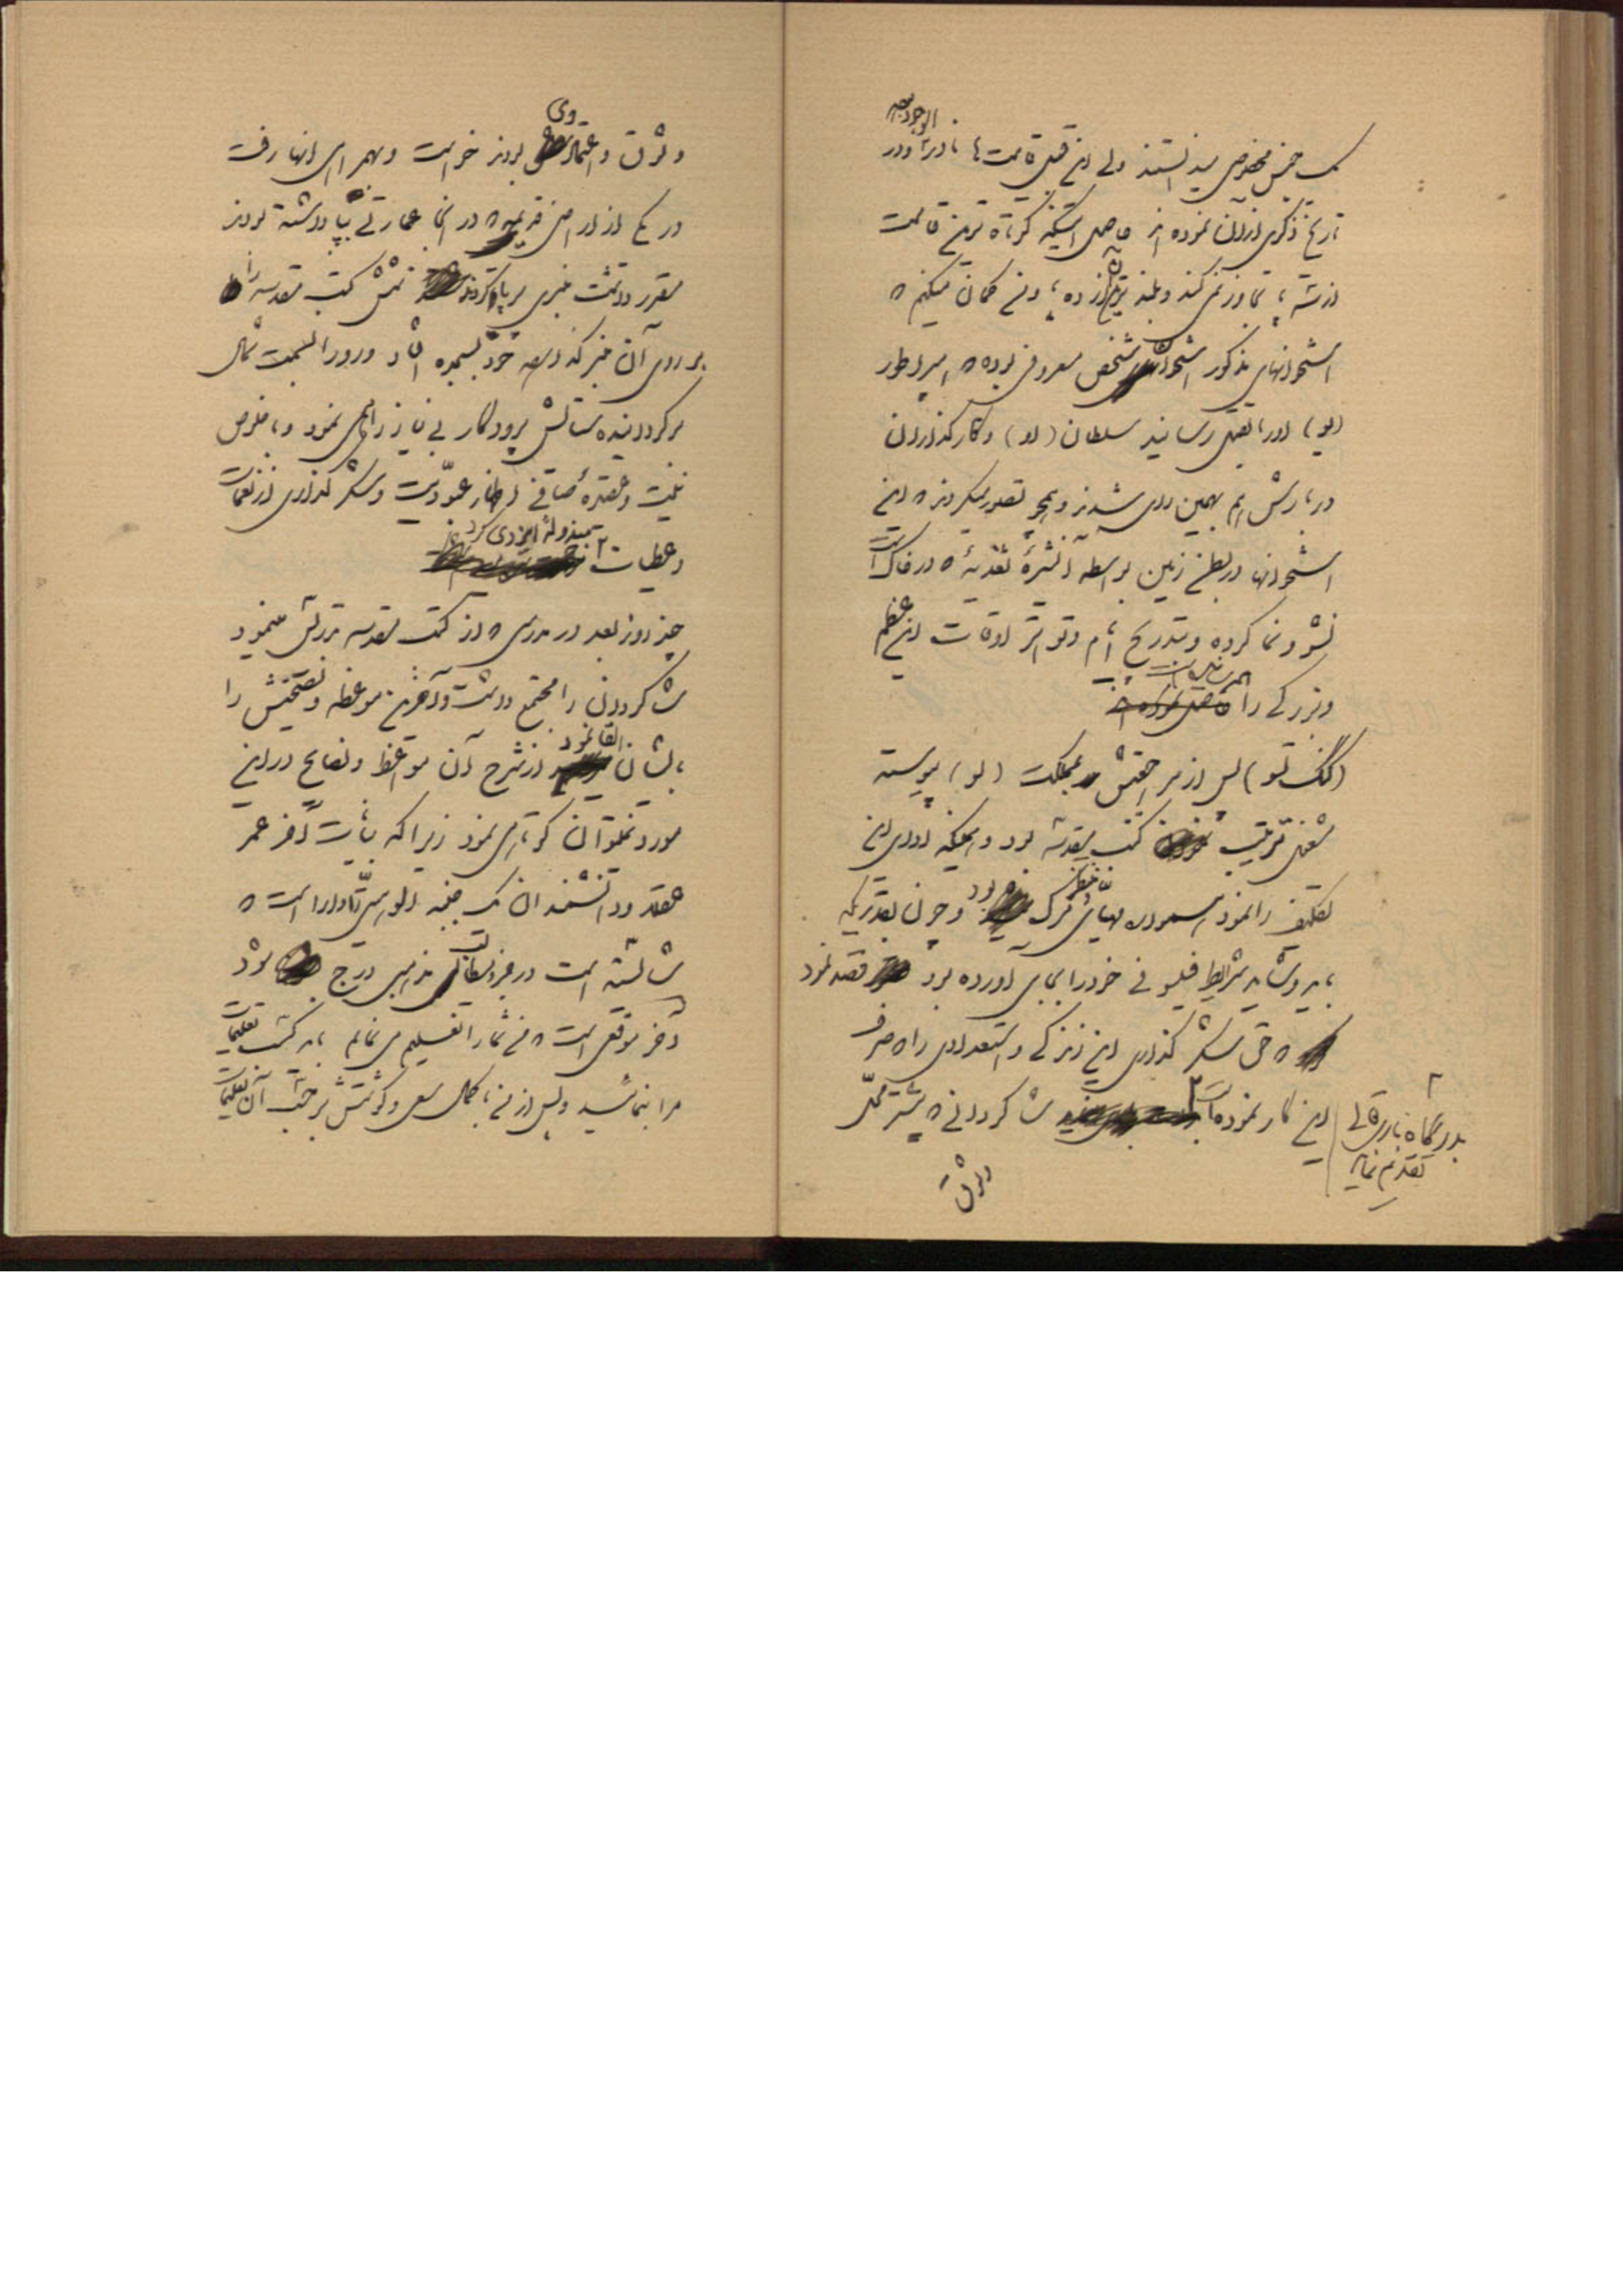 یک جنس مخصوص میدانستند ولی این قبیل قامت ها نادراً در
الوجود بوده
تاریخ ذکری از آن نموده اند حاصل اینکه کوتاه ترین قامت
از سه پا تجاوز نمی کند و بلند ترین آن از ده پا و من گمان میکنم که
استخوانهای مذکور استخوان شخص معروفی بوده که امپراطور
(یو) او را بقتل رسانید سلطان (لو) و کارگذاران
دربارش هم بهمین رای شدند و همچو تصور میکردند که این
استخوانها در بطن زمین بواسطه اثر تغذیه که در خاک است
نشو و نما کرده و بتدریج ایام و تواتر اوقات این عظم
و بزرگی را
(کنگ تسو) پس از مراجعتش بمملکت (لو) پیوسته
مشغول ترتیب کتب مقدسه بود و همینکه ادای این
تکلیف را نمود آسوده مهیای مرگ بود و چون بقدریکه
باید و شاید شرایط فیلسوفی خود را بجای آورده بود قصد نمود
که حق شکر گذاری این زندگی و استعدادی را که صرف
این کار نموده است شاگردانی که بیشتر محل
بدرگاه باری تعالی
تقدیم نماید
وثوق
وثوق و اعتماد وی بودند خواست و بهمراهی آنها رفت
در یکی از اراضی قریبه که در آنجا عمارتی بپا داشته بودند
مقرر داشت منبری برپا کردند شش کتب مقدسه را
بر روی آن منبر گذاشته خود بسجده افتاد و رو را بسمت شمال
برگردانیده ستایش پروردگار بی نیاز را همی نمود و با خلوص
نیت و عقیده صافی اظهار عبودیت و شکر گذاری از نعمات
و عطیات مبذوله ایزدی کرد
چند روز بعد در مدرسی که از کتب مقدسه تدریس مینمود
شاگردان را مجتمع داشت و آخرین موعظه و نصیحتش را
بایشان القا نمود از شرح آن مواعظ و نصایح در این
مورد نمیتوان کوتاهی نمود زیرا که بیانات آخر عمر
عقلا و دانشمندان یک جنبه الوهیتی را دارا است که
شایسته است در هر کتاب مذهبی درج بود
آخر موقعی است که من شما را تعلیم می نمایم باید کسب تعلیمات
مرا بنمائید و پس از من با کمال سعی و کوشش بر حسب آن تعلیمات